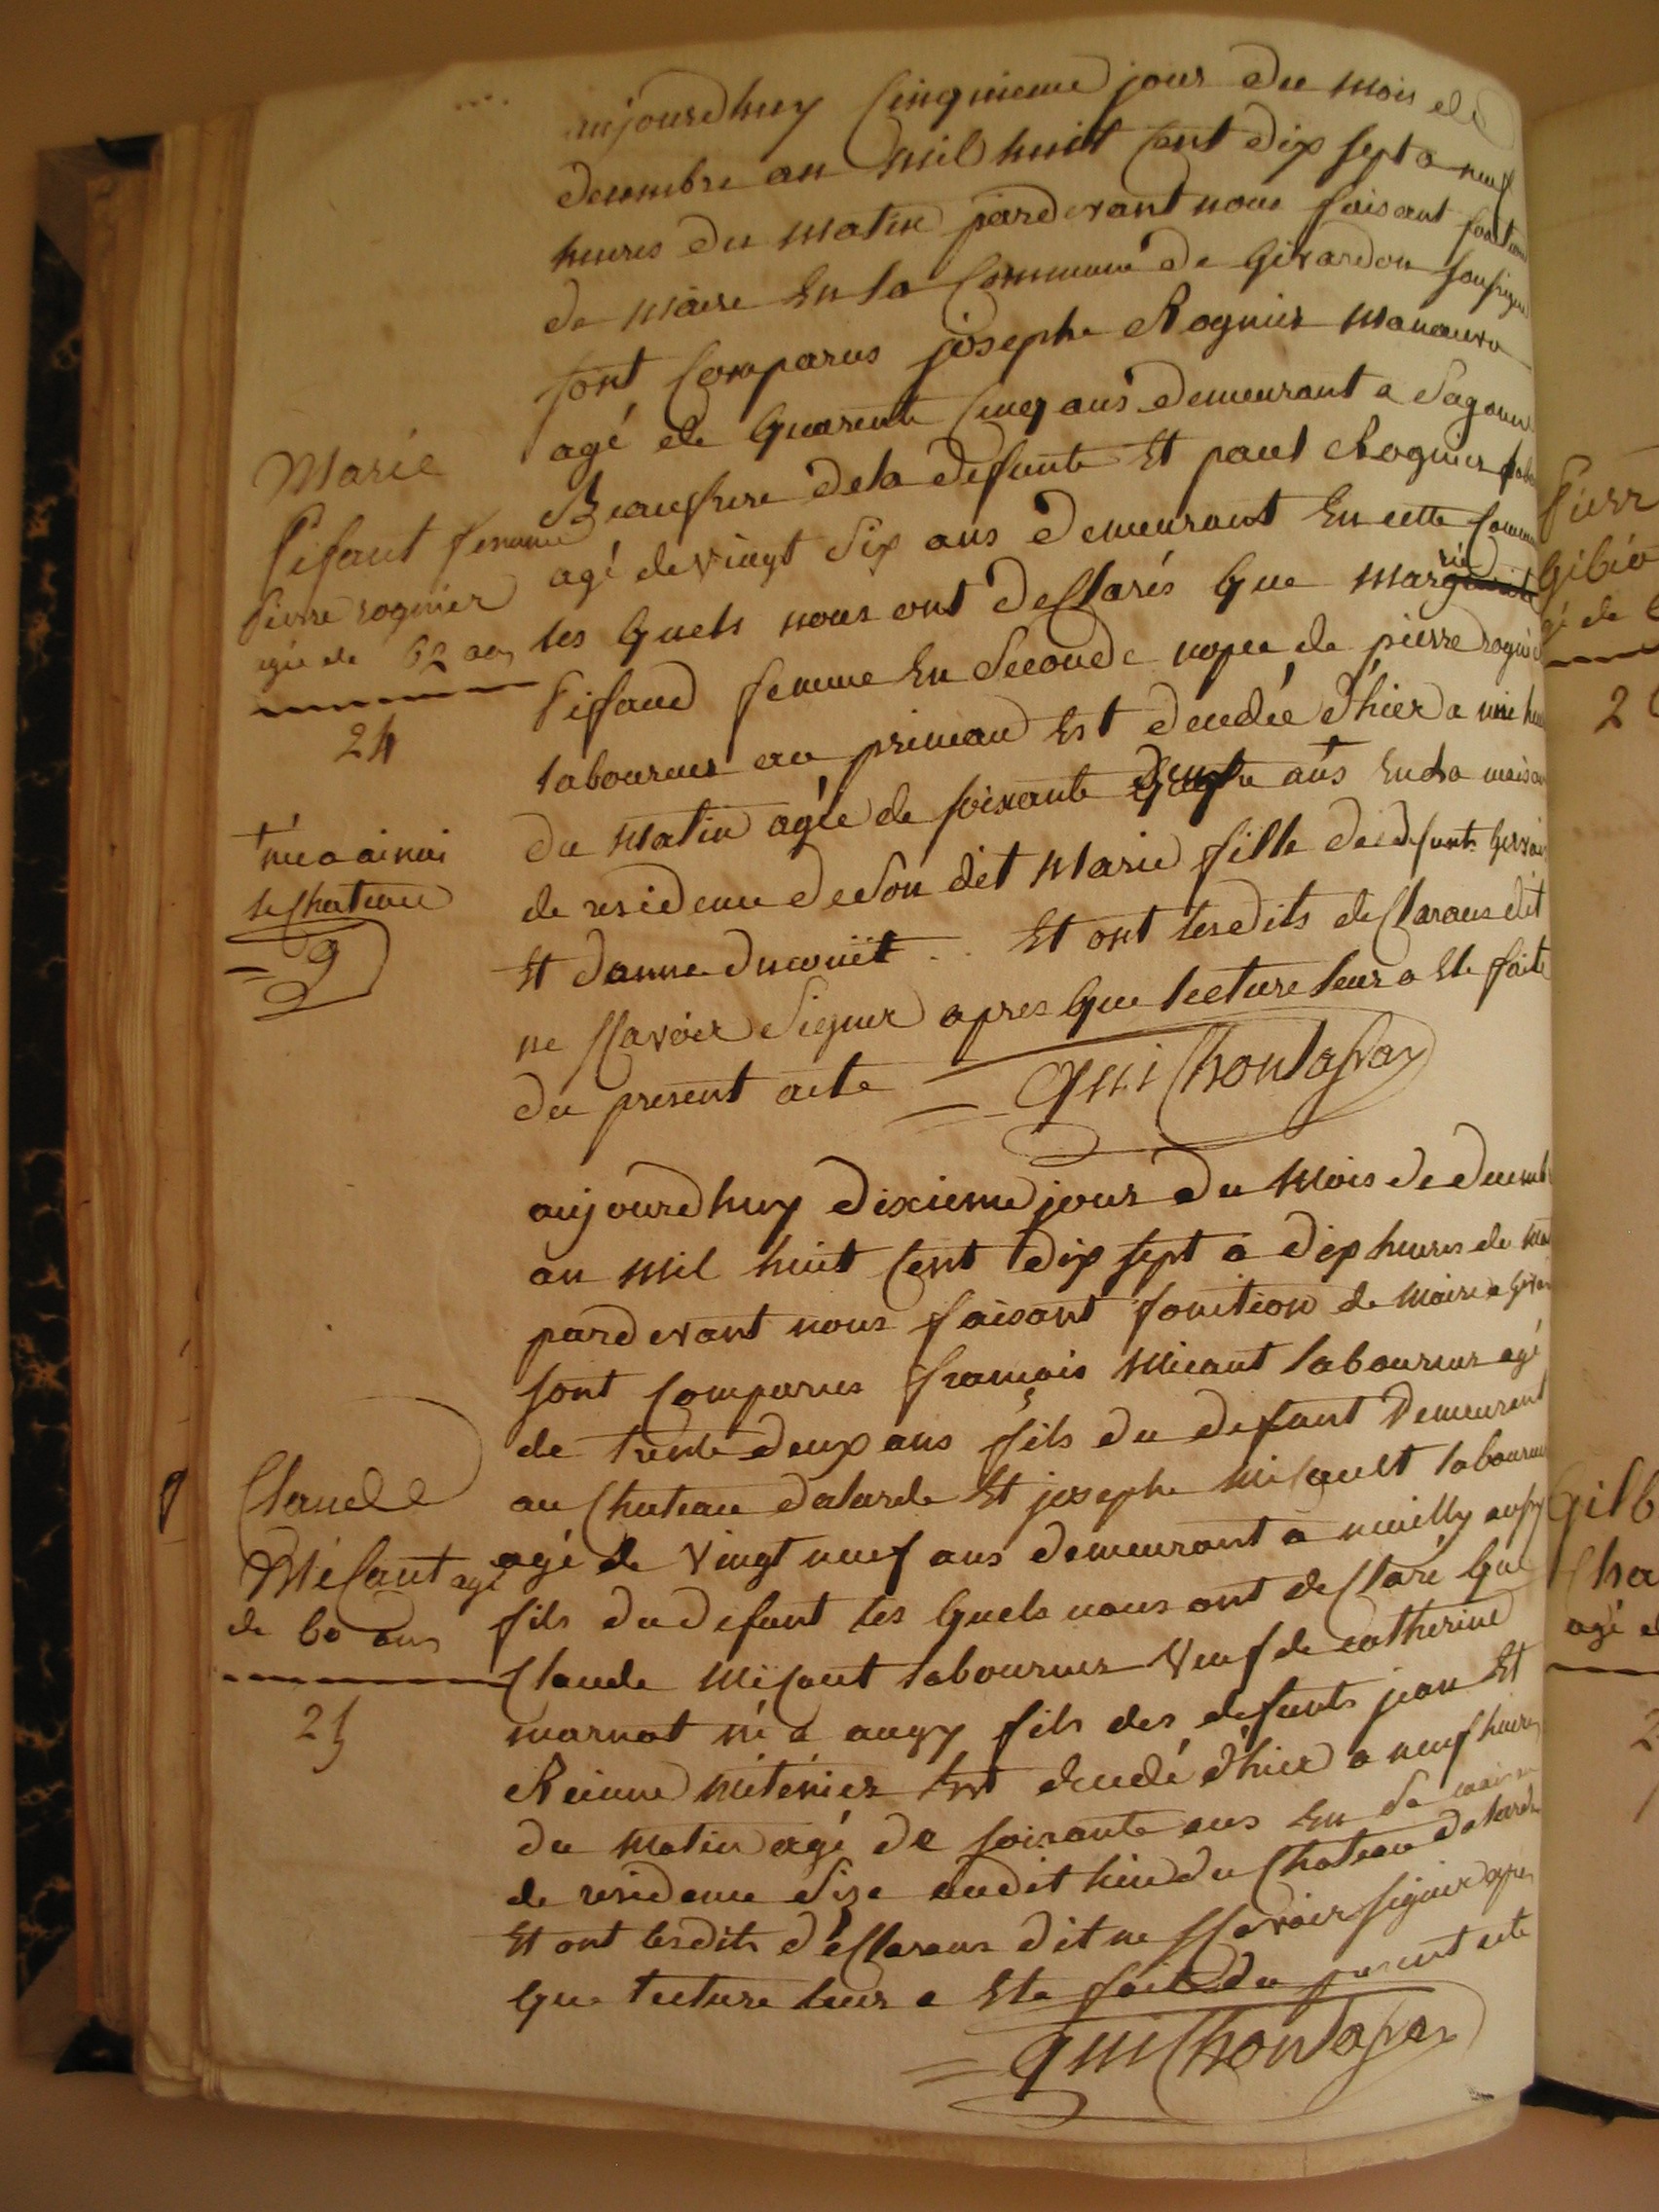 aujourdhuy Cinquieme jour du mois de
decembre an mil huit Cent dix sept a neuf
heures du matin pardevant nous faisant fonction
de maire En la Commune de Givardon
sont Comparus josephe Rognier
agé de quarente Cinq ans demeurant a Sagonne
Beaufrere dela defunte Et paul Rognier
agé de vingt six ans demeurant En cette Commune
les quels nous ont desclarés que marie
Pifaud femme En Seconde nopce de pierre rognier
laboureur au primeau Est decedée d'hier a une heure
du matin agée de soixante deux ans En la maison
de residence de son dit Marie fille de defunts
Et danne Et ont lesdits desclarans dit
ne sçavoir signer apres que lecture leur a Ete faite
du present acte
quichontafray
Marie
Pifaut femme
Pierre rognier
agée de 62 ans
24
née a ainai
le chateau
aujourdhuy dixieme jour du mois de decembre
an mil huit Cent dix sept a dix heures de
pardevant nous faisant fonction de maire a
sont Comparus François Micaut laboureur agé
de trente deux ans fils du defunt demeurant
au Chateau dalarde Et josephe Micault laboureur
agé de vingt neuf ans demeurant a neuilly aussy
fils du defunt les quels nous ont desclaré que
Claude Micaut laboureur veuf de catherine
marnat né a augy fils des defunts jean Et
Reinne miténier Est decedé d'hier a neuf heures
du matin agé de soixante ans En sa maison
de residence size audit lieu du Chateau dalarde
Et ont lesdits desclarans dit ne sçavoir signer apres
que lecture leur a Ete faite du present acte
quichontafray
Claude
Micaut agé
de 60 ans
25
Pierr
Gibio
gé de
2
Gilb
Cha
agé d
2